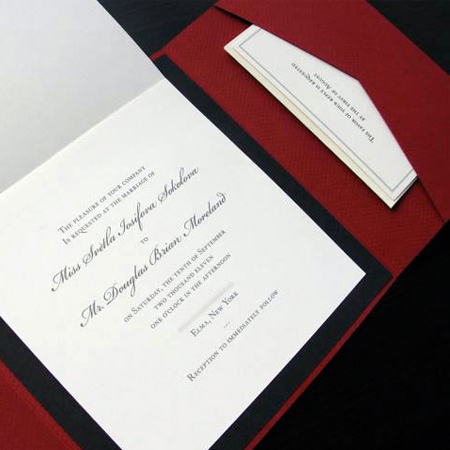 The pleasure of your company
Is requested at the marriage of
Miss Svetla Iosifova Sokolova
to
Mr. Douglas Brian Moreland
on Saturday, the tenth of September
two thousand eleven
one o'clock in the afternoon
Elma, New York
...
Reception to immediately follow
The favor of your reply is requested
by the first of August